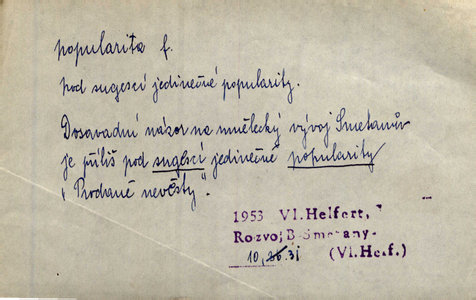 popularita f.
pod sugescí jedinečné popularity.
Dosavadní názor na umělecký vývoj Smetanův
je příliš pod sugescí jedinečné popularity
"Prodané nevěsty".
1953 Vl. Helfert,
Rozvoj B. Smetany
10, 31 (Vl. Helf.)